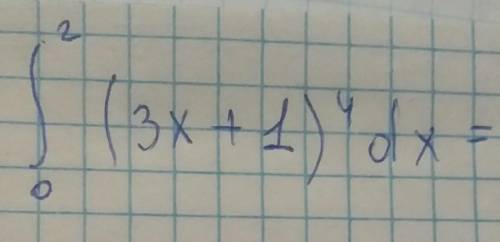 ∫₀² (3x + 1)⁴ dx =